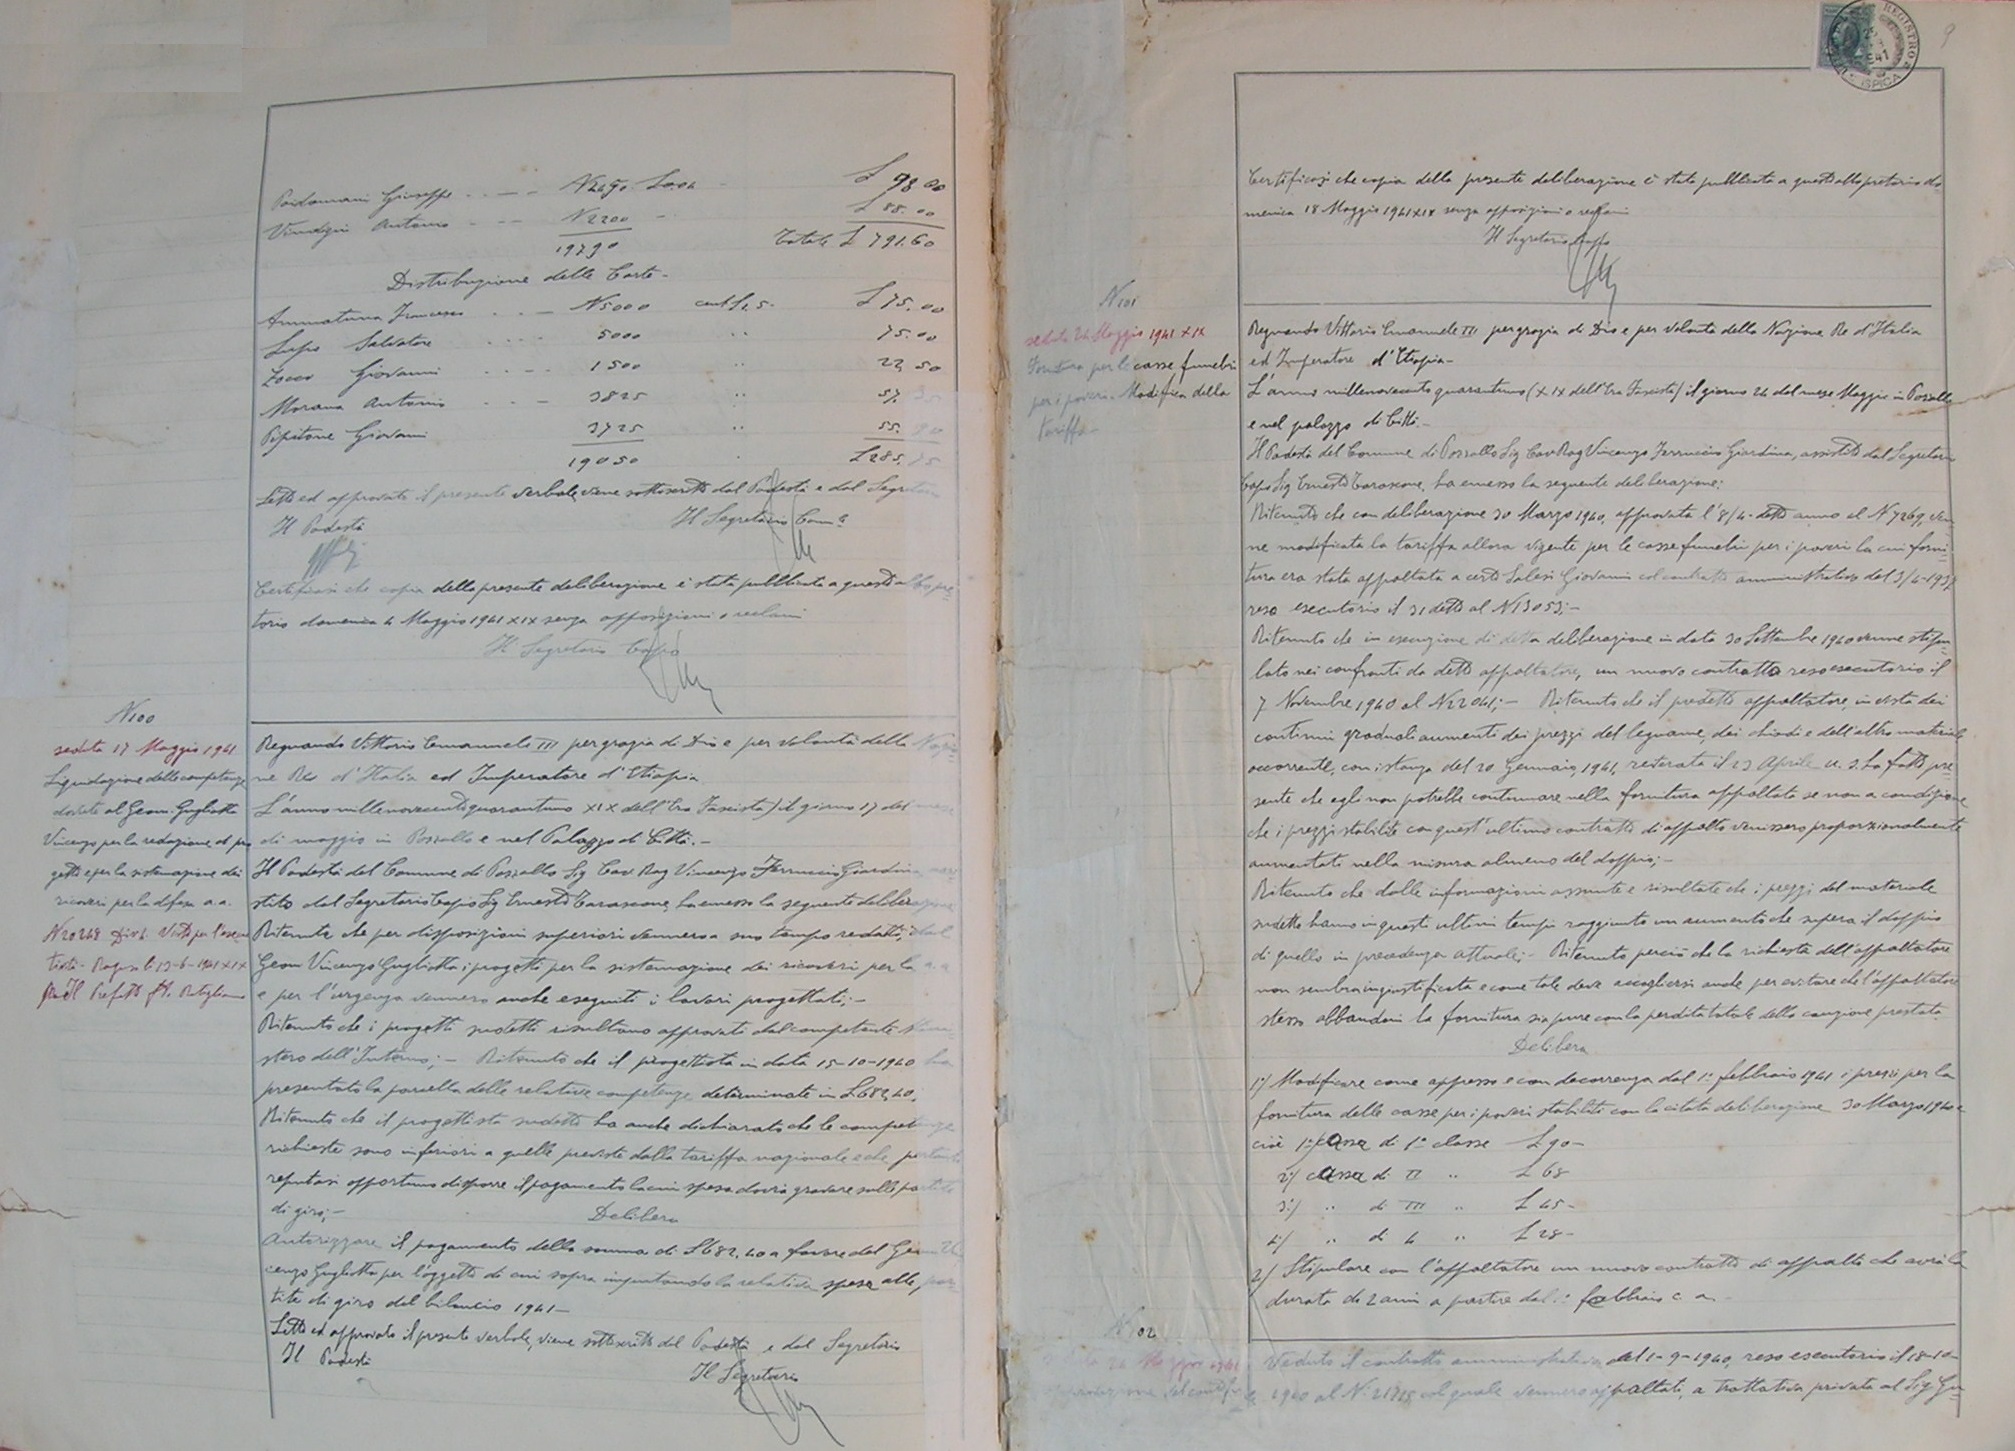 Giuseppe N 2450 L 0.04 L 98.00
Vindigni Antonio N 2200 L 88.00
19790 Totale L 791.60
Distribuzione delle Carte -
Ammatuna Francesco N 5000 cent 1,5 L 75.00
Lupo Salvatore 5000 " 75.00
Zocco Giovanni 1500 " 22,50
Morana Antonio 3825 " 57.
Pipitone Giovanni 3725 " 55.
19050 L 285.
Letto ed approvato il presente verbale, viene sottoscritto dal Podestà e dal Segretario
Il Podestà Il Segretario Com.le
Certificasi che copia della presente deliberazione è stata pubblicata a questo albo pre-
torio domenica 4 Maggio 1941 XIX senza opposizioni o reclami
Il Segretario Capo
N 100
seduta 17 Maggio 1941
Liquidazione delle competenze
dovute al Geom. Gugliotta
Vincenzo per la redazione di pro
getti e per la sistemazione dei
ricoveri per la difesa a.a.
N 20248 Div. Visto per l'esecu
tività - Ragusa li 13-6-1941 XIX
Il Prefetto
Regnando Vittorio Emanuele III per grazia di Dio e per volontà della Nazio-
ne Re d'Italia ed Imperatore d'Etiopia
L'anno millenovecentoquarantuno XIX dell'Era Fascista) il giorno 17 del mese
di maggio in Pozzallo e nel Palazzo di Città. -
Il Podestà del Comune di Pozzallo Sig Cav Rag Vincenzo Ferruccio Giardina, assi
stito dal Segretario Capo Sig Ernesto Tarascone, ha emesso la seguente deliberazione
Ritenuto che per disposizioni superiori vennero a suo tempo redatti, dal
Geom Vincenzo Gugliotta i progetti per la sistemazione dei ricoveri per la a.a
e per l'urgenza vennero anche eseguiti i lavori progettati; -
Ritenuto che i progetti suddetti risultano approvati dal competente Mini
stero dell'Interno; - Ritenuto che il progettista in data 15-10-1940 ha
presentato la parcella delle relative competenze determinate in L 682,40,
Ritenuto che il progettista sudetto ha anche dichiarato che le competenze
richieste sono inferiori a quelle previste dalla tariffa nazionale e che, pertanto
reputasi opportuno disporre il pagamento la cui spesa dovrà gravare sulle partite
di giro; - Delibera
Autorizzare il pagamento della somma di L 682,40 a favore del Geom Vin
cenzo Gugliotta per l'oggetto di cui sopra imputando la relativa spesa alle, par
tite di giro del bilancio 1941 -
Letto ed approvato il presente verbale, viene sottoscritto dal Podestà e dal Segretario
Il Podestà Il Segretario
Certificasi che copia della presente deliberazione è stata pubblicata a questo albo pretorio do
menica 18 Maggio 1941 XIX senza opposizioni o reclami
Il Segretario Capo
N 101
seduta 24 Maggio 1941 XIX
Fornitura per le casse funebri
per i poveri. Modifica della
tariffa -
Regnando Vittorio Emanuele III per grazia di Dio e per volontà della Nazione Re d'Italia
ed Imperatore d'Etiopia -
L'anno millenovecento quarantuno (XIX dell'Era Fascista) il giorno 24 del mese Maggio in Pozzallo
e nel palazzo di Città. -
Il Podestà del Comune di Pozzallo Sig Cav Rag Vincenzo Ferruccio Giardina, assistito dal Segretario
Capo Sig Ernesto Tarascone, ha emesso la seguente deliberazione:
Ritenuto che con deliberazione 30 Marzo 1940, approvata l'8/4 detto anno al N 7269, ven-
ne modificata la tariffa allora vigente per le casse funebri per i poveri la cui forni-
tura era stata appaltata a certo Salesi Giovanni col contratto amministrativo del 3/4-1937
reso esecutorio il 31 detto al N 13053; -
Ritenuto che in esecuzione di detta deliberazione in data 30 Settembre 1940 venne stipu-
lato nei confronti da detto appaltatore, un nuovo contratto reso esecutorio il
7 Novembre 1940 al N 22041; - Ritenuto che il predetto appaltatore, in vista dei
continui graduali aumenti dei prezzi del legname, dei chiodi e dell'altro materiale
occorrente, con istanza del 20 Gennaio 1941, reiterata il 23 Aprile u. s. ha fatto pre-
sente che egli non potrebbe continuare nella fornitura appaltata se non a condizione
che i prezzi stabiliti con quest'ultimo contratto di appalto venissero proporzionalmente
aumentati nella misura almeno del doppio; -
Ritenuto che dalle informazioni assunte è risultato che i prezzi del materiale
sudetto hanno in questi ultimi tempi raggiunto un aumento che supera il doppio
di quello in precedenza attuale; - Ritenuto perciò che la richiesta dell'appaltatore
non sembra ingiustificata e come tale deve accogliersi anche per evitare che l'appaltatore
stesso abbandoni la fornitura sia pure con la perdita totale della cauzione prestata
Delibera
1°/ Modificare come appresso e con decorrenza dal 1° febbraio 1941 i prezzi per la
fornitura delle casse per i poveri stabiliti con la citata deliberazione 30 Marzo 1940 e
cioè 1°/ cassa di 1° classe L 90 -
2°/ cassa di II " L 68
3°/ " di III " L 45 -
4°/ " di 4 " L 28 -
2/ Stipulare con l'appaltatore un nuovo contratto di appalto che avrà la
durata di 2 anni a partire dal 1° febbraio c. a. -
N 102
Veduto il contratto amministrativo del 1-9-1940, reso esecutorio il 18-10-
1940 al N. 21715 col quale vennero appaltati, a trattativa privata al Sig Gu-
REGISTRO
ISPICA
9